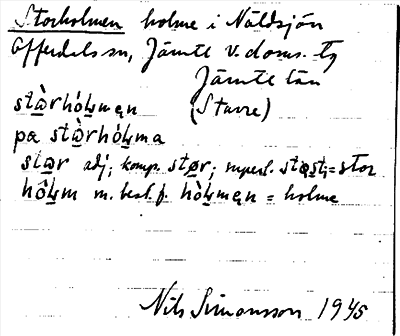 Storholmen holme i Näldsjön
Offerdals sn, Jämtl. v. doms. tg
Jämtl. län
stὼrhόl̥mən (Stavre)
pa stὼrhόl̥ma
stωr adj; komp. stør; superl. støst = stor
hôl̥m m. best. f. hòl̥mən = holme
Nils Simonsson 1945